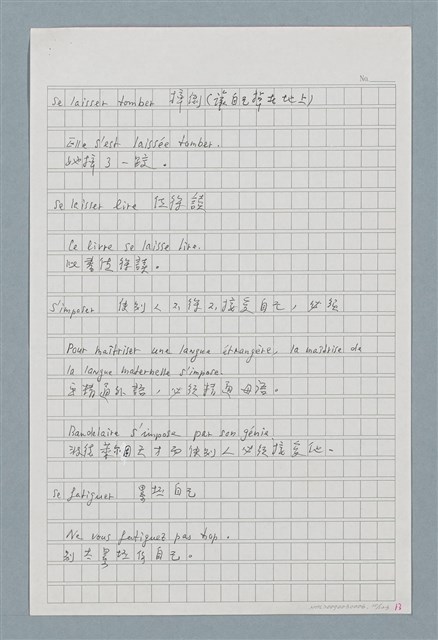 No.
se laisser tomber 摔倒(讓自己掉在地上)
Elle s'est laissée tomber.
她摔了一跤。
se laisser lire 值得讀
Ce livre se laisse lire.
這書值得讀。
s'imposer 使別人不得不接受自己,必須
Pour maîtriser une langue étrangère, la maîtrise de
la langue maternelle s'impose.
要精通外語,必須精通母語。
Baudelaire s'impose par son génie.
因天才而使別人必須接受他。
se fatiguer 累壞自己
Ne vous fatiguez pas trop.
別太累壞你自己。
13